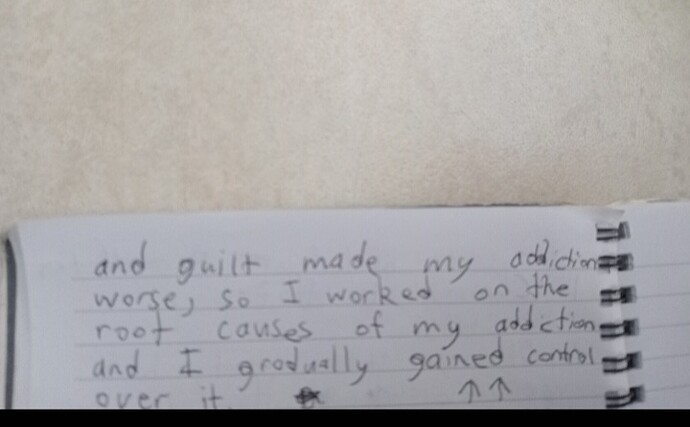 and guilt made my addiction
worse, so I worked on the
root causes of my addiction
and I gradually gained control
over it. ↑↑